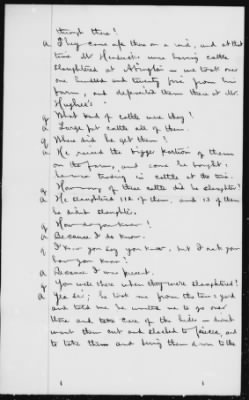 through there?
A They came up there on a          and at that
time Mr.            were having cattle
slaughtered at Abingdon – we took over
one hundred and twenty five from our
farm, and deposited them there at Mr.
Hughes's
Q What kind of cattle were they?
A Large fat cattle all of them.
Q Where did he get them?
A He raised the bigger portion of them
on the farm, and some he bought;
he was trading in cattle at the time.
Q How many of these cattle did he slaughter?
A He slaughtered 112 of them, and 13 of them
he didn't slaughter.
Q How do you know?
A Because I do know.
Q I know you say you know, but I ask you
how you know?
A Because I was present.
Q You were there when they were slaughtered?
A Yes sir; he took me from the          yard
and told me he wanted me to go over
there and take care of the hides –
want them cut and                     and
to take them and bring them down to the